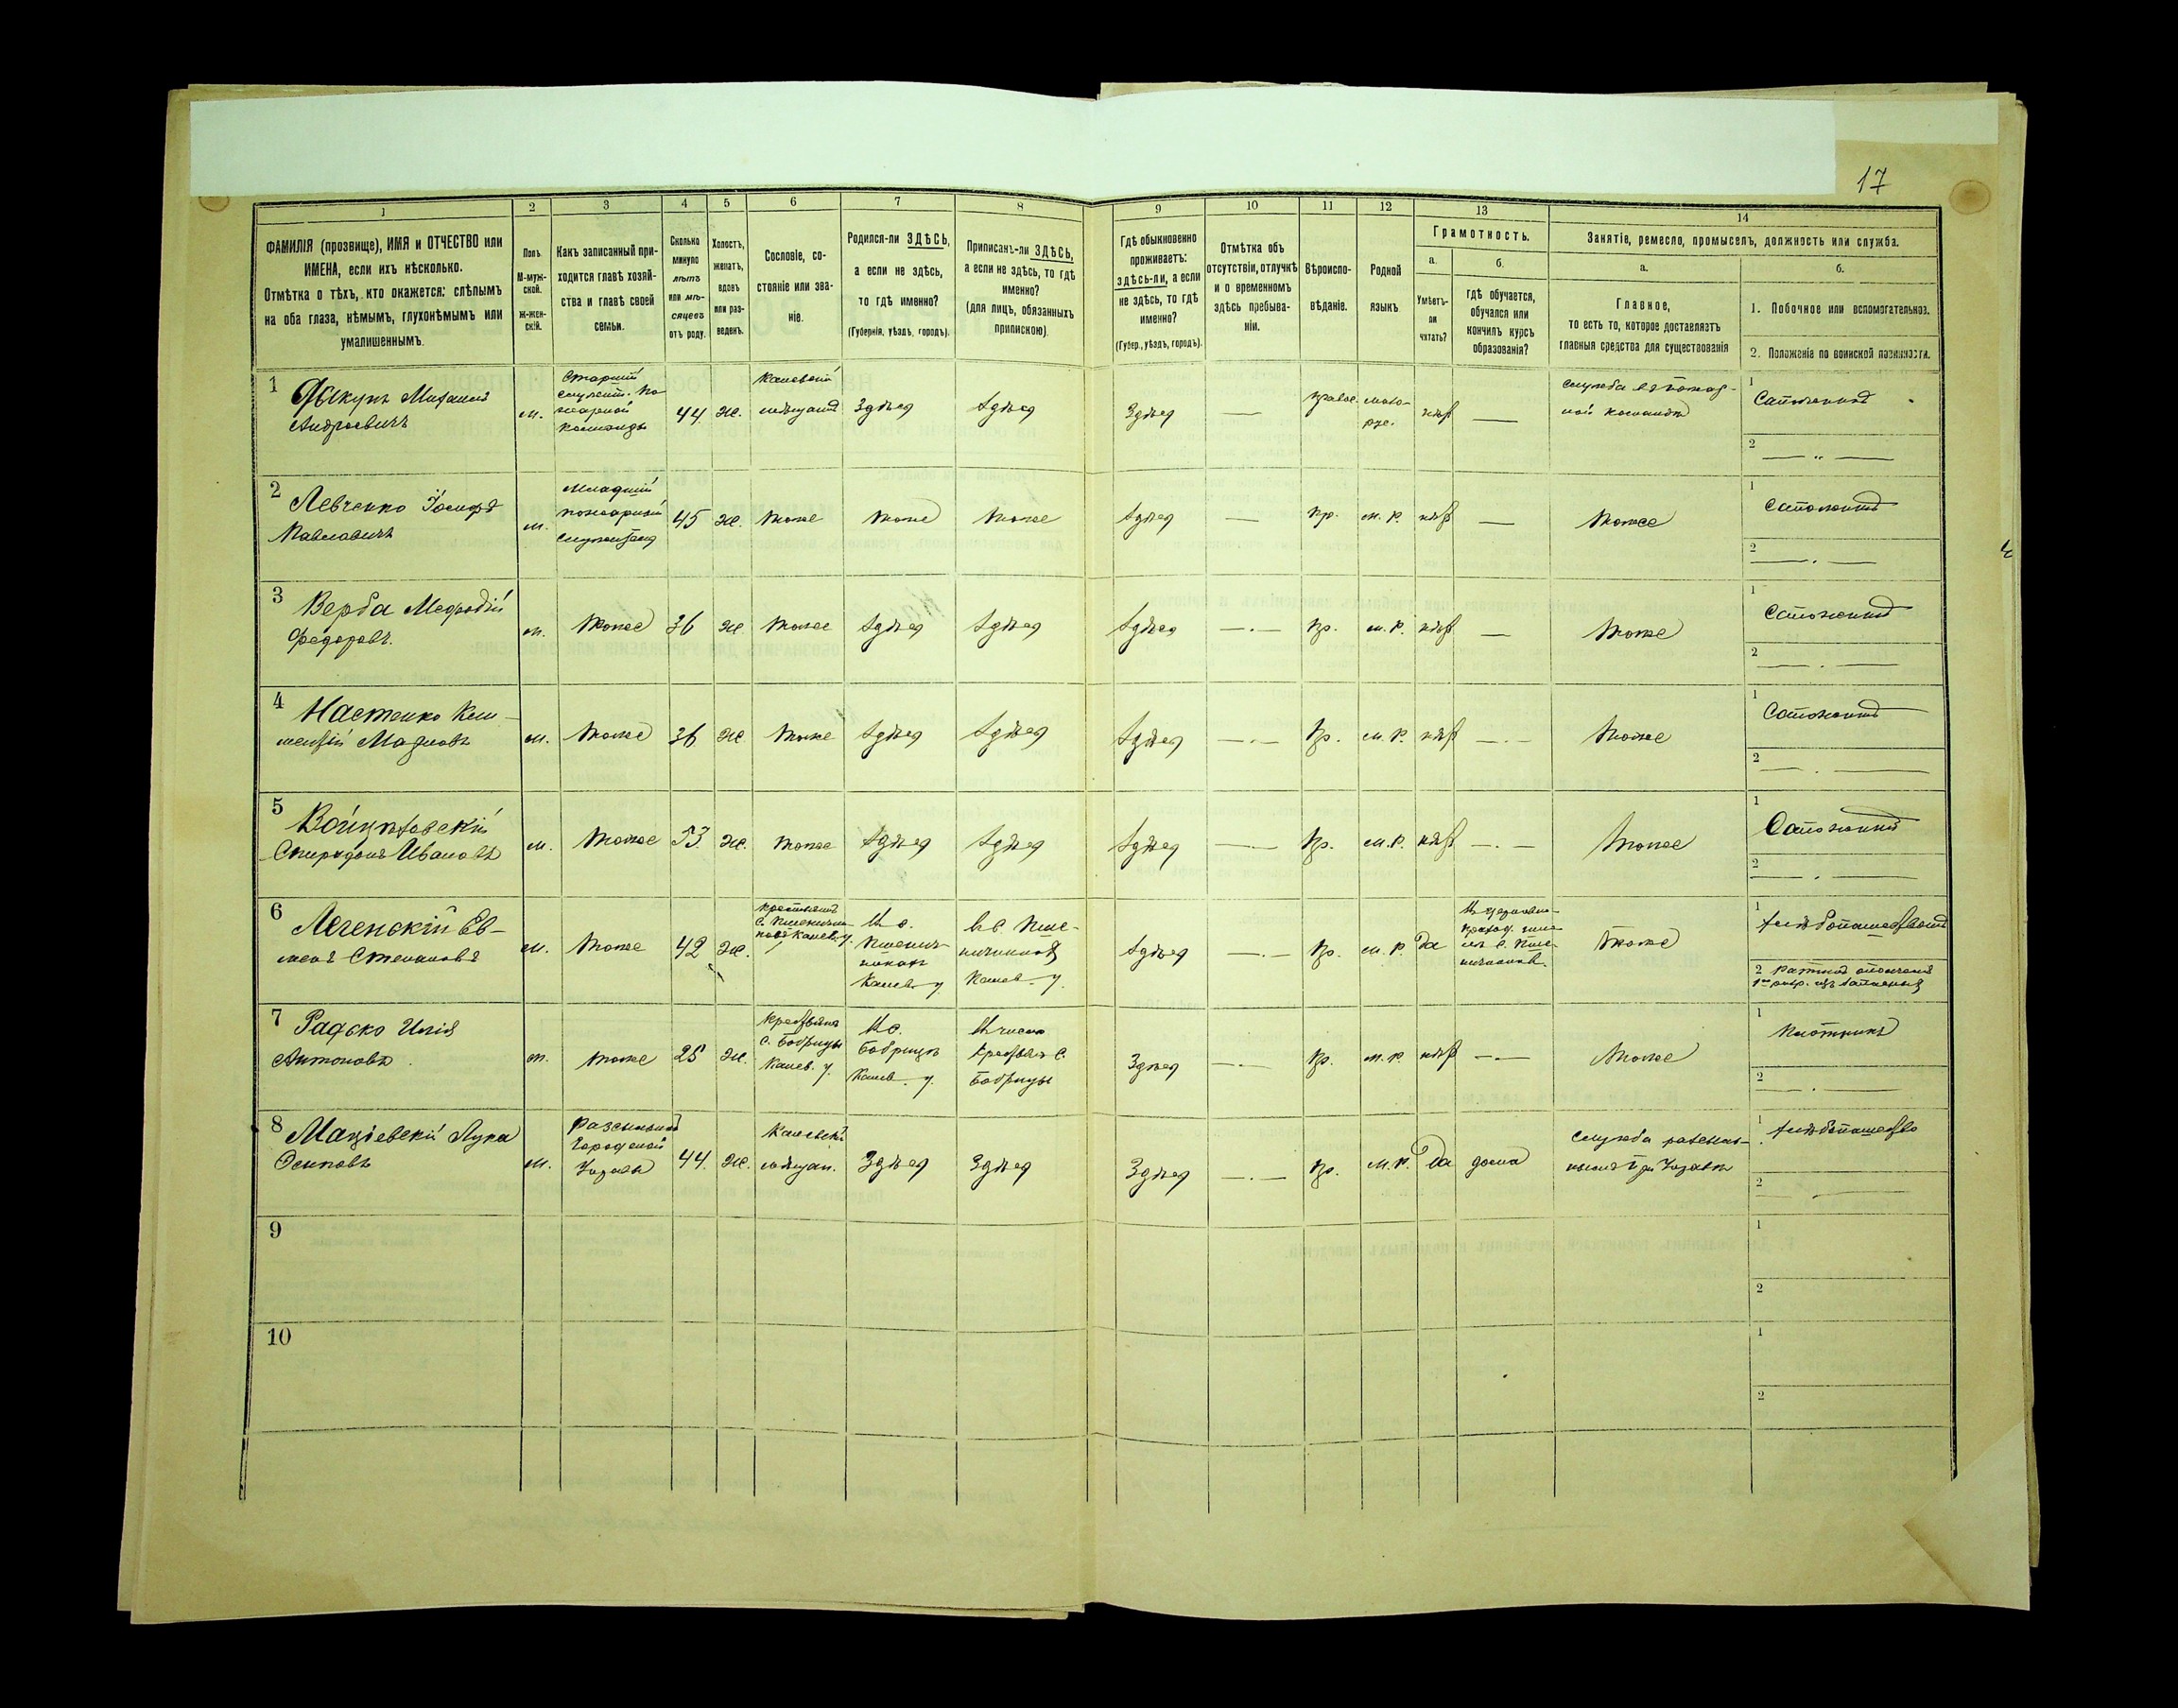 17
1 2 3 4 5 6 7 8 9 10 11 12 13 14
ФАМИЛІЯ (прозвище), ИМЯ и ОТЧЕСТВО или
ИМЕНА, если ихъ нѣсколько.
Отмѣтка о тѣхъ, кто окажется: слѣпымъ
на оба глаза, нѣмымъ, глухонѣмымъ или
умалишеннымъ.
Полъ.
М-муж-
ской.
Ж-жен-
скій.
Какъ записанный при-
ходится главѣ хозяй-
ства и главѣ своей
семьи.
Сколько
минуло
лѣтъ
или мѣ-
сяцевъ
отъ роду.
Холостъ,
женатъ,
вдовъ
или раз-
веденъ.
Сословіе, со-
стояніе или зва-
ніе.
Родился-ли ЗДѢСЬ,
а если не здѣсь,
то гдѣ именно?
(Губернія, уѣздъ, городъ).
Приписанъ-ли ЗДѢСЬ,
а если не здѣсь, то гдѣ
именно?
(для лицъ, обязанныхъ
припискою).
Гдѣ обыкновенно
проживаетъ:
здѣсь-ли, а если
не здѣсь, то гдѣ
именно?
(Губер., уѣздъ, городъ).
Отмѣтка объ
отсутствіи, отлучкѣ
и о временномъ
здѣсь пребыва-
ніи.
Вѣроиспо-
вѣданіе.
Родной
языкъ.
Грамотность.
а.
Умѣетъ-
ли
читать?
б.
гдѣ обучается,
обучался или
кончилъ курсъ
образованія?
Занятіе, ремесло, промыселъ, должность или служба.
а.
Главное,
то есть то, которое доставляетъ
главныя средства для существованія
б.
1. Побочное или вспомогательное.
2. Положеніе по воинской повинности.
1
Михаилъ
Андреевичъ
м.
Старшій
служит. по
жарной
команды
44
ж.
Каневскій
мѣщанинъ
Здѣсь
Здѣсь
Здѣсь
—
правос.
мало-
рус.
нѣтъ
—
служба въ пожар-
ной командѣ
1
Сапожникъ
2
— „ —
2
Левченко Іосифъ
Павловичъ
м.
Младшій
пожарный
служитель
45
ж.
тоже
тоже
тоже
Здѣсь
—
пр.
м. р.
нѣтъ
—
тоже
1
Сапожникъ
2
— . —
3
Верба Мефодій
Федоровъ.
м.
тоже
36
ж
тоже
Здѣсь
Здѣсь
Здѣсь
— . —
пр.
м. р.
нѣтъ
—
тоже
1
Сапожникъ
2
— . —
4
Настенко Кли-
ментій
м.
тоже
36
ж
тоже
Здѣсь
Здѣсь
Здѣсь
— . —
пр.
м. р.
нѣтъ
— . —
тоже
1
Сапожникъ
2
— . —
5
Спиридонъ Ивановъ
м.
тоже
53
ж.
тоже
Здѣсь
Здѣсь
Здѣсь
— . —
пр.
м. р.
нѣтъ
— . —
тоже
1
Сапожникъ
2
— . —
6
Легенскій Ев-
менъ Степановъ
м.
тоже
42
ж.
крестьянинъ
с. Пшенични-
ковъ Канев. у.
Въ с.
Пшенич-
никахъ
Канев. у.
Въ с. Пше-
ничникахъ
Канев. у.
Здѣсь
— . —
пр.
м. р.
да
Въ церковно-
приход. шко-
лѣ с. Пше-
ничников.
тоже
1
Хлѣбопашествомъ
2 ратникъ ополченія
1го разр. изъ запасныхъ
7
Радько Илія
Антоновъ.
м.
тоже
25
ж.
Крестьянъ
с. Бобрицы
Канев. у.
Въ с.
Бобрицѣ
Канев. у.
Въ числѣ
крестьянъ с.
Бобрицы
Здѣсь
— . —
пр.
м. р
нѣтъ
— . —
тоже
1
Плотникъ
2
— . —
8
Маціевскій Лука
Осиповъ
м.
Разсыльный
Городской
Управы
44.
ж.
Каневскій
мѣщан.
Здѣсь
Здѣсь
Здѣсь
— . —
пр.
м. р.
Да
дома
служба разсыль-
нымъ при Управѣ
1
Хлѣбопашество
2
— . —
9
1
2
10
1
2